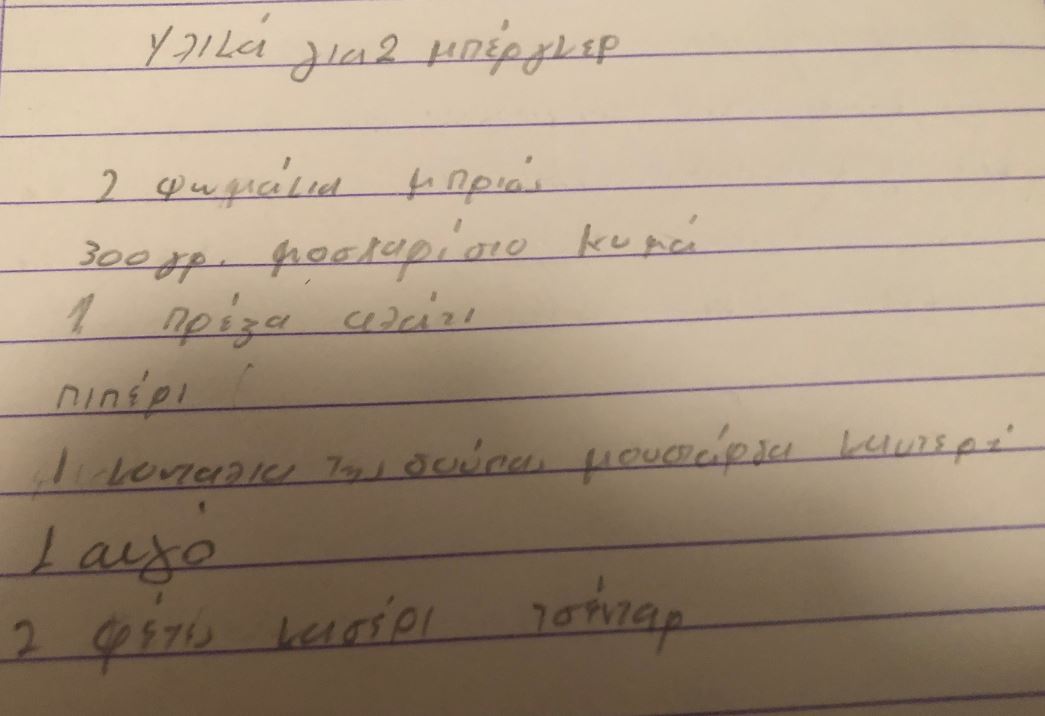 Υλικά για 2 μπέργκερ
2 ψωμάκια μπριός
300 γρ. μοσχαρίσιο κυμά
1 πρέζα αλάτι
πιπέρι
1 κουταλια της σούπας μουστάρδα καυτερή
1 αυγό
2 φέτες κασέρι τσένταρ